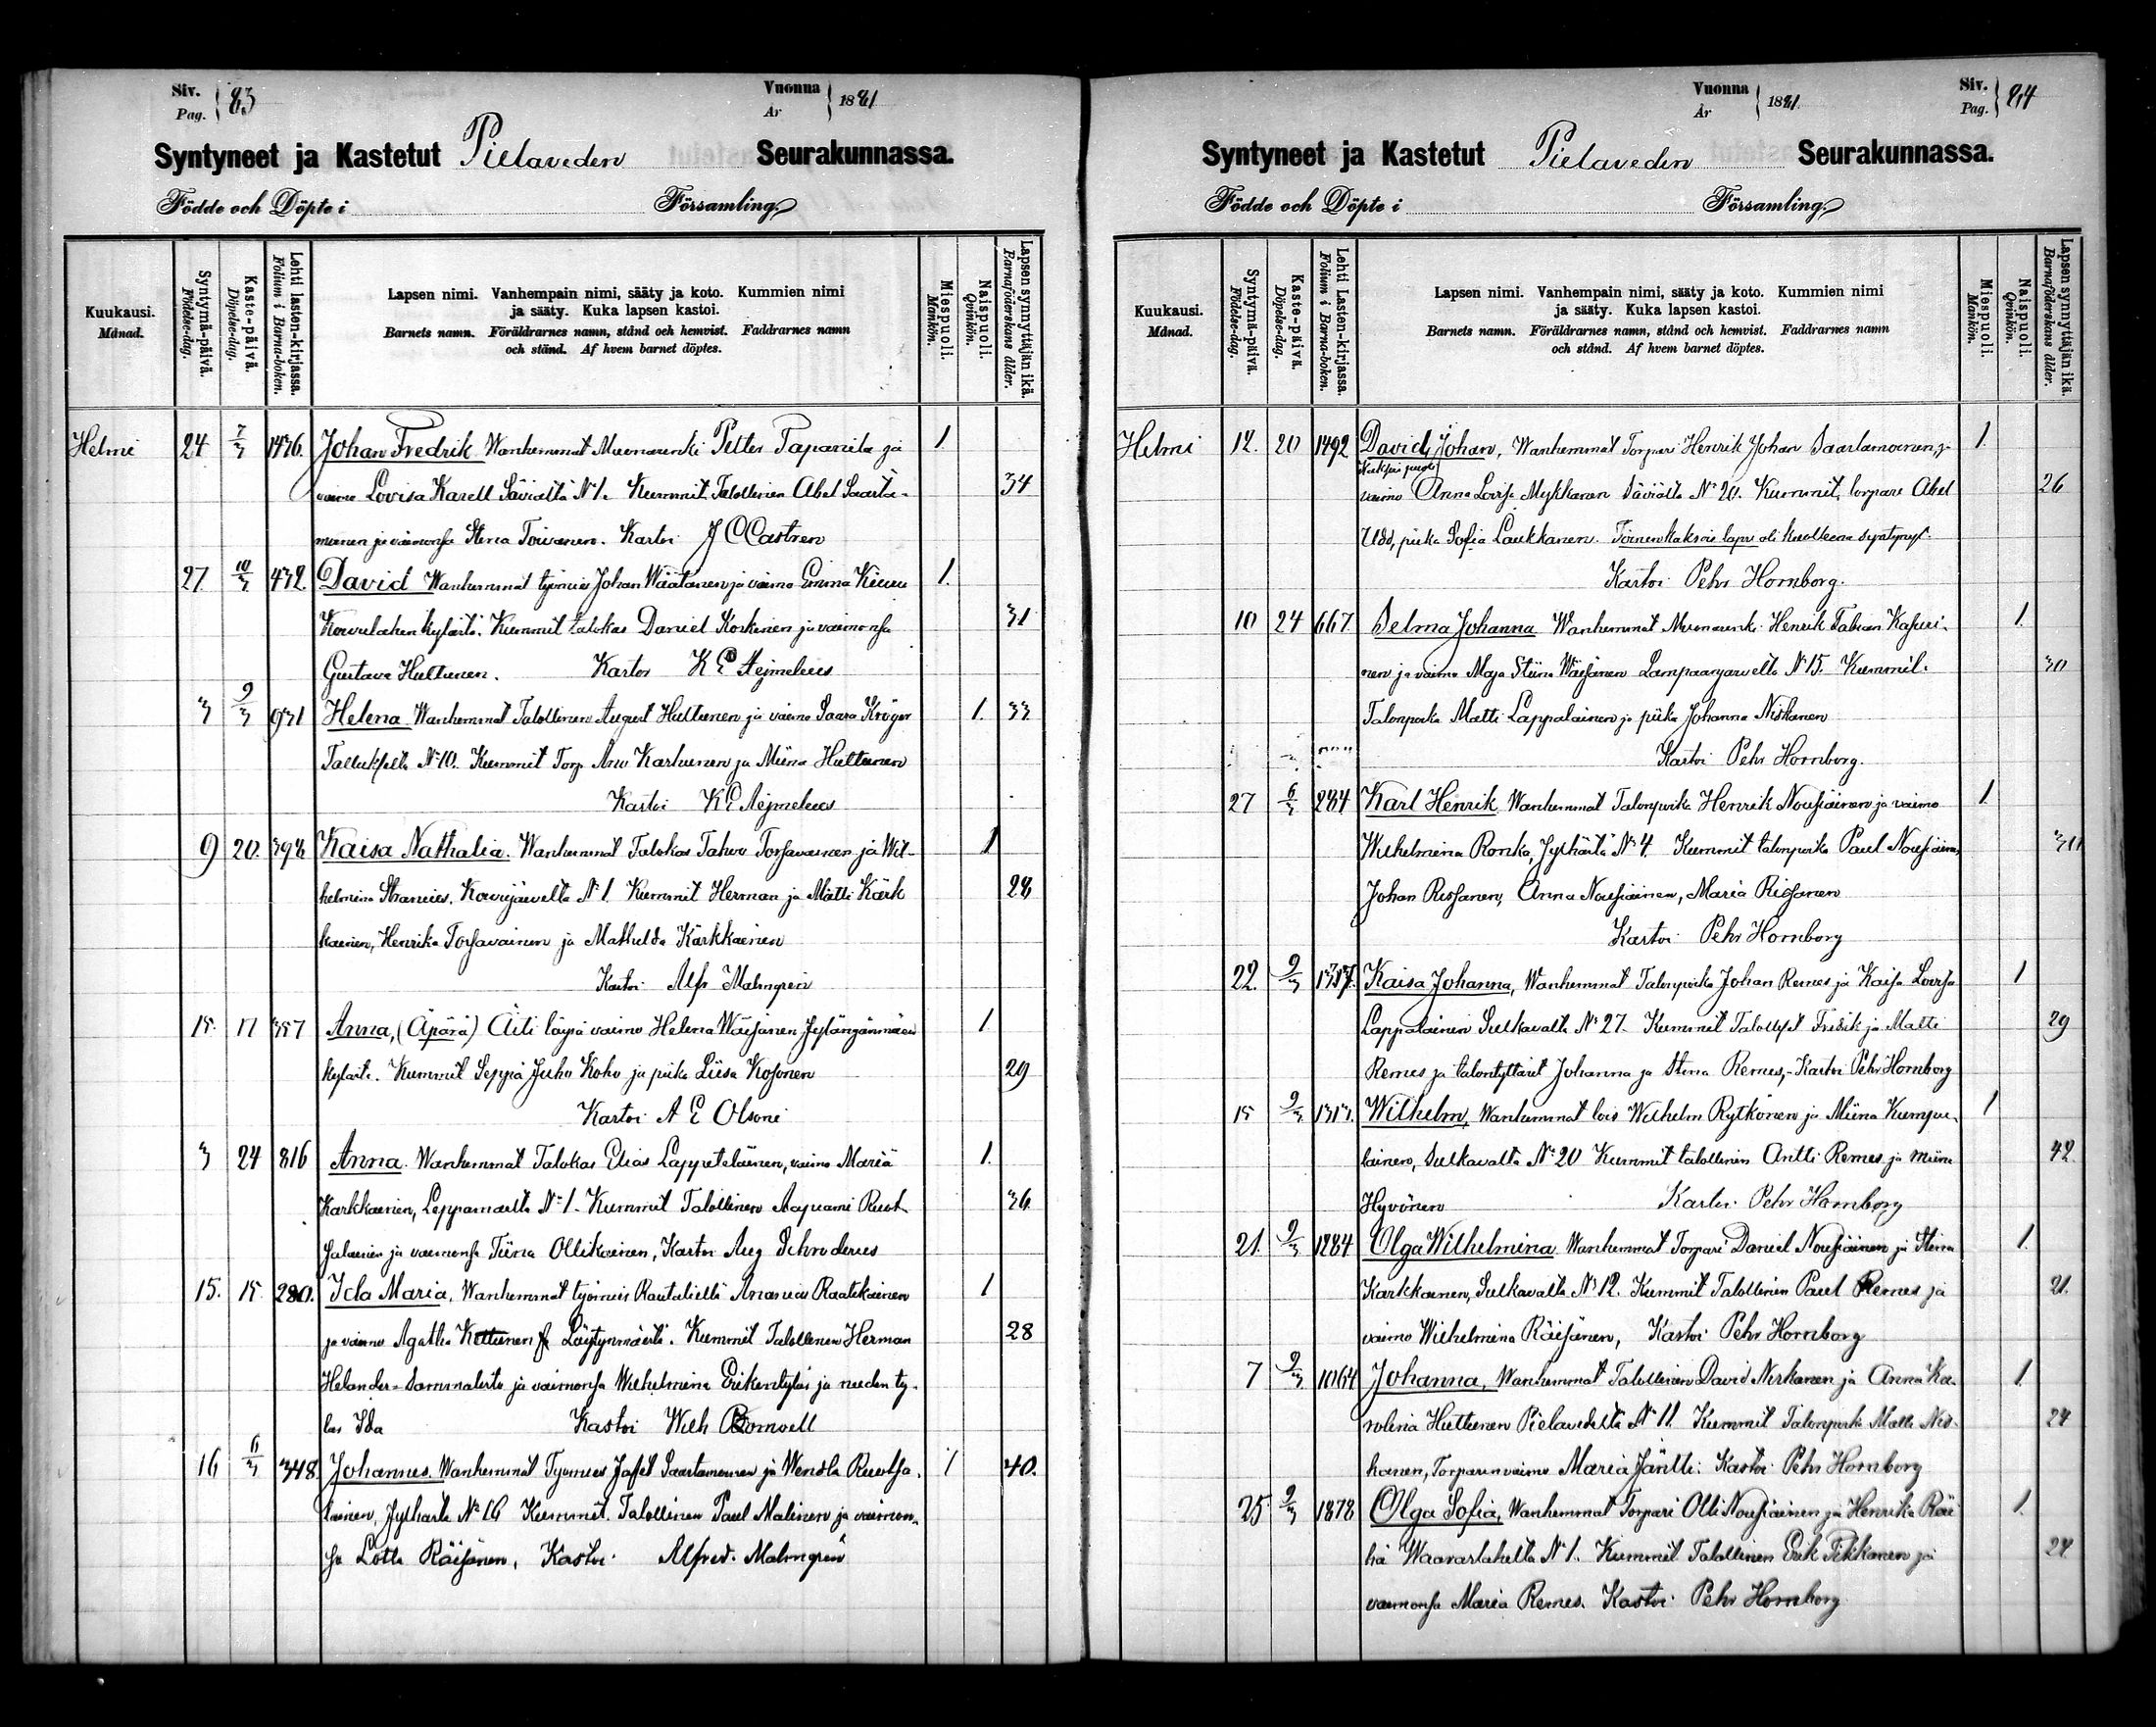 Siv. Pag. 83 Vuonna År 1881
Syntyneet ja Kastetut Pielaveden Seurakunnassa.
Födde och Döpte i Församling.
Kuukausi. Månad.
Syntymä-päivä. Födelse-dag.
Kaste-päivä. Döpelse-dag.
Lehti lasten-kirjassa. Folium i Barna-boken.
Lapsen nimi. Vanhempain nimi, sääty ja koto. Kummien nimi
ja sääty. Kuka lapsen kastoi.
Barnets namn. Föräldrarnes namn, stånd och hemvist. Faddrarnes namn
och stånd. Af hvem barnet döptes.
Miespuoli. Mankön.
Naispuoli. Qvinkön.
Lapsen synnyttäjän ikä. Barnaföderskans ålder.
Helmi 24 7/3 1476. Johan Fredrik Wanhemmat Muonarenki Petter Tapanila ja 1.
vaimo Lovisa Karell Säviältä No 1. Kummit Talollinen Abel Saarta- 34
moinen ja vaimonsa Stena Toivanen. Kastoi J C Castren
27. 10/3 472. David Wanhemmat työmies Johan Väätänen ja vaimo Emma 1.
kylästä. Kummit talokas Daniel Korkinen ja vaimonsa 31
Gustava Huttunen. Kastoi K E Aejmelæus
3 9/3 931 Helena Wanhemmat Talollinen August Huttunen ja vaimo Saara Kröger 1. 33
No 10. Kummit Torp. Karhunen ja Miina Huttunen
Kastoi K E Aejmelæus
9 20. 398 Kaisa Nathalia. Wanhemmat Talokas Tahvo Torsavainen ja Wil- 1
helmina No 1. Kummit Herman ja Matti Kärk 28
kainen, Henrika Torsavainen ja Mathilda Kärkkäinen
Kastoi Alfr Malmgren
15. 17 357 Anna, (Äpärä) Äiti löysä vaimo Helena Wäisänen 1
kylästä. Kummit Seppä Juho Koho ja piika Liisa Kosonen 29
Kastoi A E Olsoni
3 24 816 Anna. Wanhemmat Talokas Elias Lappeteläinen, vaimo Maria 1.
Karkkainen, Leppämäeltä No 1. Kummit Talollinen Ruot- 36
salainen ja vaimonsa Tiina Ollikainen, Kastoi Aug Schroderus
15. 15. 280. Ida Maria, Wanhemmat työmies Rautatiellä Ananias Raatikainen 1
ja vaimo Agatha Kettunen Löytynmäestä. Kummit Talollinen Herman 28
Helander Sammalista ja vaimonsa Wilhelmina ja niiden ty-
tär Ida Kastoi Wilh Bornvell
16 6/3 348. Johannes. Wanhemmat Tyomies Jafet Saartamoinen ja Wendla Ruotsa- 1 40.
lainen, No 16 Kummit. Talollinen Paul Malinen ja vaimon-
sa Lotta Räisänen, Kastoi Alfred. Malmgren
Vuonna År 1881. Siv. Pag. 84
Syntyneet ja Kastetut Pielaveden Seurakunnassa.
Födde och Döpte i Församling.
Kuukausi. Månad.
Syntymä-päivä. Födelse-dag.
Kaste-päivä. Döpelse-dag.
Lehti Lasten-kirjassa. Folium i Barna-boken.
Lapsen nimi. Vanhempain nimi, sääty ja koto. Kummien nimi
ja sääty. Kuka lapsen kastoi.
Barnets namn. Föräldrarnes namn, stånd och hemvist. Faddrarnes namn
och stånd. Af hvem barnet döptes.
Miespuoli. Mankön.
Naispuoli. Qvinkön.
Lapsen synnyttäjän ikä. Barnaföderskans ålder.
Helmi 12. 20 1492 David Johan, Wanhemmat Torpari Henrik Johan Saartamoinen, ja 1.
vaimo Anna Lovisa Mykkanen Säviältä No 20. Kummit, torpare Abel 26
piika Sofia Laukkanen. Toinen kaksois lapsi oli kuolleena syntynyt.
Kastoi Pehr Hornborg.
10 24 667 Selma Johanna Wanhemmat Muonarenk. Henrik Fabian Kasuri- 1.
nen ja vaimo Maja Stiina Wäisänen Lampaanjärveltä No 15. Kummit. 30
Talonpoika Matti Lappalainen ja piika Johanna Niskanen
Kastoi Pehr Hornborg.
27 6/3 284 Karl Henrik Wanhemmat Talonpoika Henrik Nousiainen ja vaimo 1
Wilhelmina Ronka, No 4. Kummit talonpoika Paul Nousiainen,
Johan Rissanen, Anna Nousiainen, Maria Rissanen
Kastoi Pehr Hornborg
22. 9/3 1317. Kaisa Johanna, Wanhemmat Talonpoika Johan Remes ja Kaisa Lovisa 1
Lappalainen Sulkavalta No 27. Kummit Talolliset Fredik ja Matti 29
Remes ja talontyttäret Johanna ja Stina Remes,- Kastoi Pehr Hornborg
15 9/3 1313. Wilhelm, Wanhemmat lois Wilhelm Rytkönen ja Miina Kumpu- 1
lainen, Sulkavalta No 20 Kummit talollinen Antti Remes ja Miina 42.
Hyvönen Kastoi Pehr Hornborg
21. 9/3 1284 Olga Wilhelmina Wanhemmat Torpari Daniel Nousiainen ja Stina 1.
Karkkainen, Sulkavalta No 12. Kummit Talollinen Paul Remes ja 21.
vaimo Wilhelmina Räisänen, Kastoi Pehr Hornborg
7 9/3 1064 Johanna, Wanhemmat Talollinen David Niskanen ja Anna Ka- 1.
rolina Huttunen Pielavedeltä No 11 Kummit Talonpoika Matti Nis- 24
kanen, Torparinvaimo Maria Jäntti. Kastoi Pehr Hornborg
25 9/3 1878 Olga Sofia, Wanhemmat Torpari Olli Nousiainen ja Henrika Räi 1.
hä Waaraslahelta No 1. Kummit Talollinen Erik Tikkanen ja 24
vaimonsa Maria Remes. Kastoi Pehr Hornborg